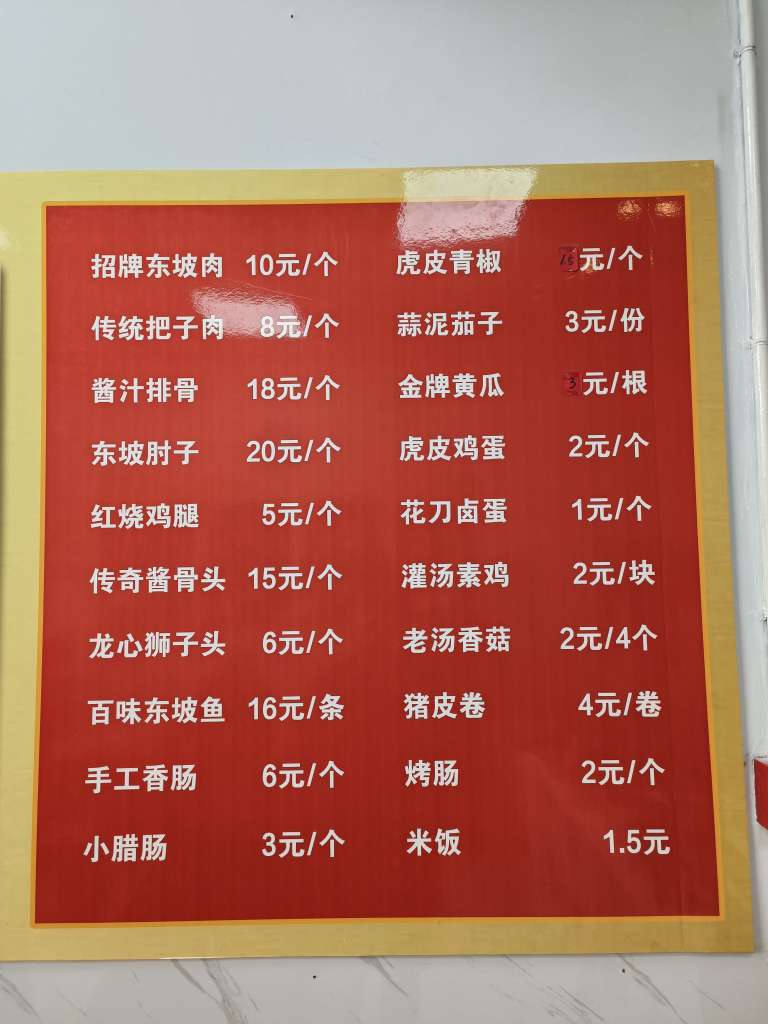 招牌东坡肉 10元/个
传统把子肉 8元/个
酱汁排骨 18元/个
东坡肘子 20元/个
红烧鸡腿 5元/个
传奇酱骨头 15元/个
龙心狮子头 6元/个
百味东坡鱼 16元/条
手工香肠 6元/个
小腊肠 3元/个
虎皮青椒 1.5元/个
蒜泥茄子 3元/份
金牌黄瓜 3元/根
虎皮鸡蛋 2元/个
花刀卤蛋 1元/个
灌汤素鸡 2元/块
老汤香菇 2元/4个
猪皮卷 4元/卷
烤肠 2元/个
米饭 1.5元